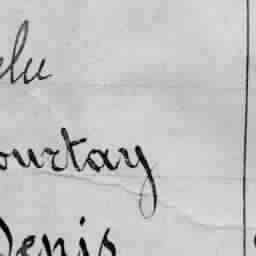 elu
ourtay
Denis